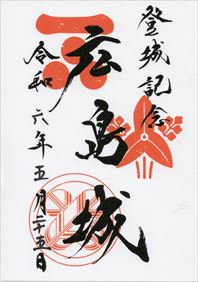 登城記念
広島城
令和六年五月二十五日